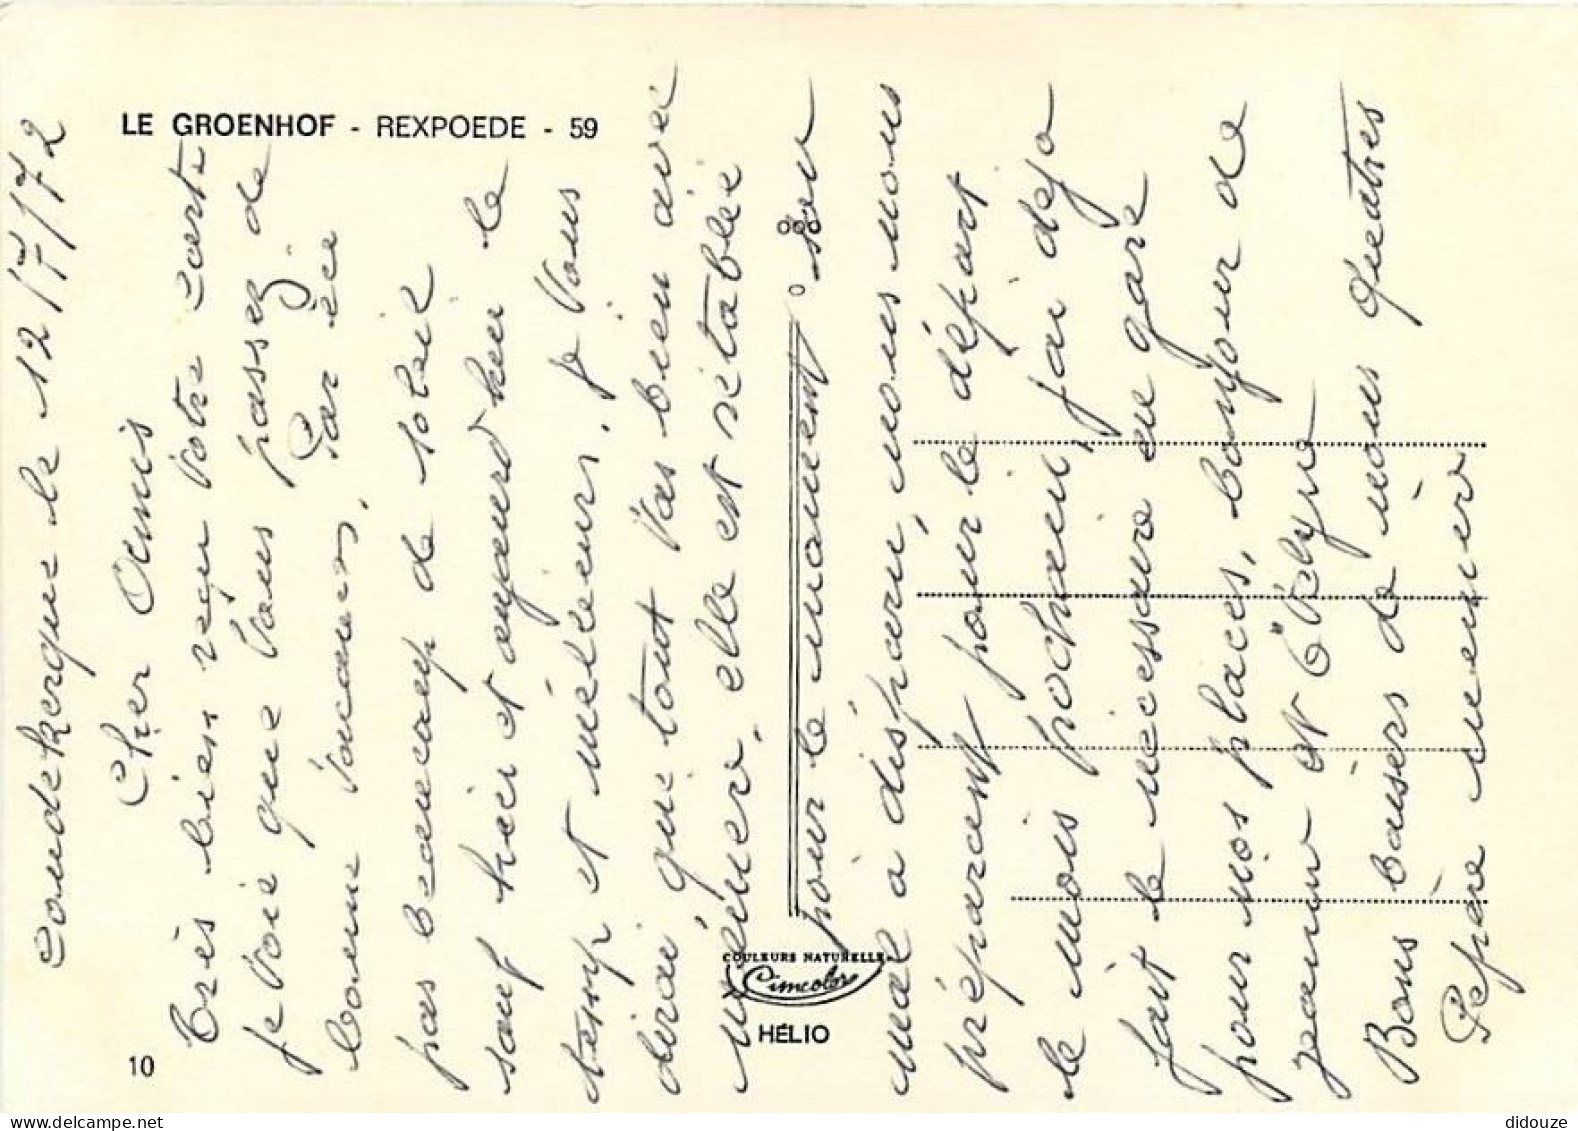 LE GROENHOF - REXPOEDE - 59
Coudekerque le 12/7/72
Cher Amis
Très bien reçu votre carte
je voie que vous passez de
bonne vacances, Par ici
pas beaucoup de soleil
sauf hier et aujourd'hui le
temp et mélleur. je vous
dirai que tout vas bien avec
mémér, elle est rétablie
pour le moment son
mal a disparu, nous nous
préparent pour le départ
le mois prochain, jai deja
fait le nécessaire en gare
pour nos places, bonjour de
et
Bons baisers de nous quatres
Pépé mémèr
COULEURS NATURELLES
Cimcolor
HÉLIO
10
didouze